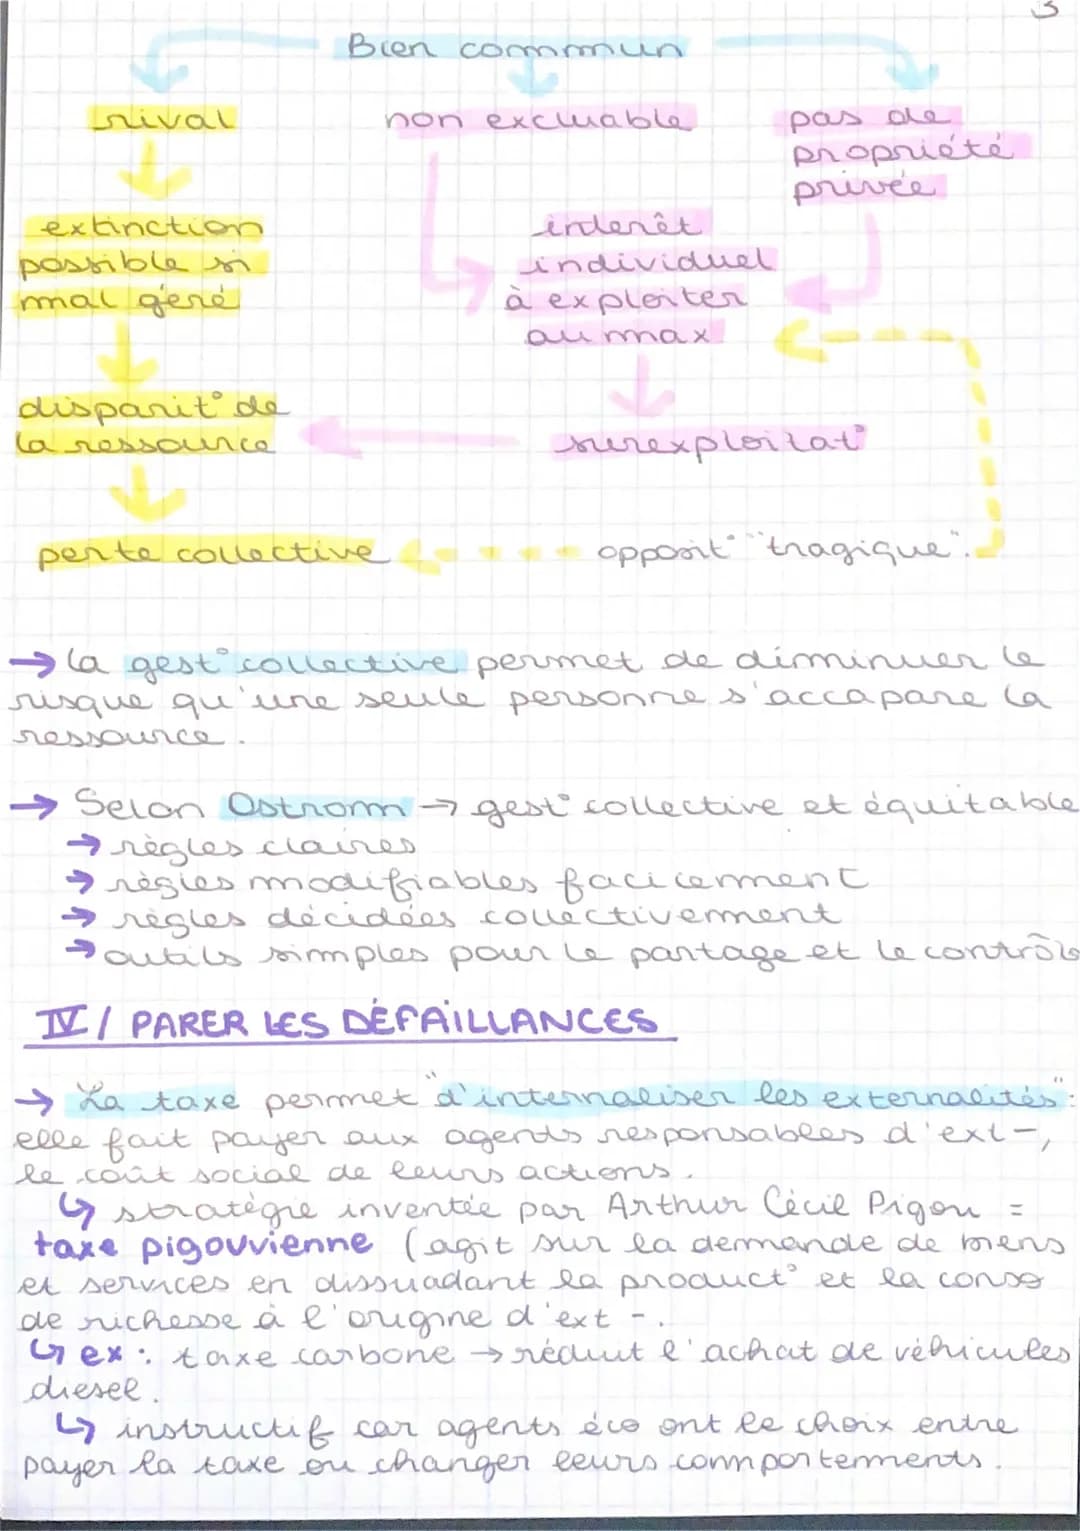 3
Bien commun
rival
non excluable
pas de
propriété
privée
extinction
possible si
mal géré
interêt
individuel
à exploiter
au max
disparit° de
la ressource
surexploitat°
perte collective
opposit° "tragique".
→ la gest° collective permet de diminuer le
risque qu'une seule personne s'accapare la
ressource.
→ Selon Ostrom → gest° collective et équitable
→ règles claires
→ règles modifiables facilement
→ règles décidées collectivement
→ outils simples pour le partage et le contrôle
IV / PARER LES DÉFAILLANCES
→ La taxe permet "d'internaliser les externalités":
elle fait payer aux agents responsables d'ext-,
le coût social de leurs actions.
↳ stratégie inventée par Arthur Cécil Pigou =
taxe pigouvienne (agit sur la demande de biens
et services en dissuadant la product° et la conso
de richesse à l'origine d'ext -.
↳ ex : taxe carbone → réduit l'achat de véhicules
diesel.
↳ instructif car agents éco ont le choix entre
payer la taxe ou changer leurs comportements.